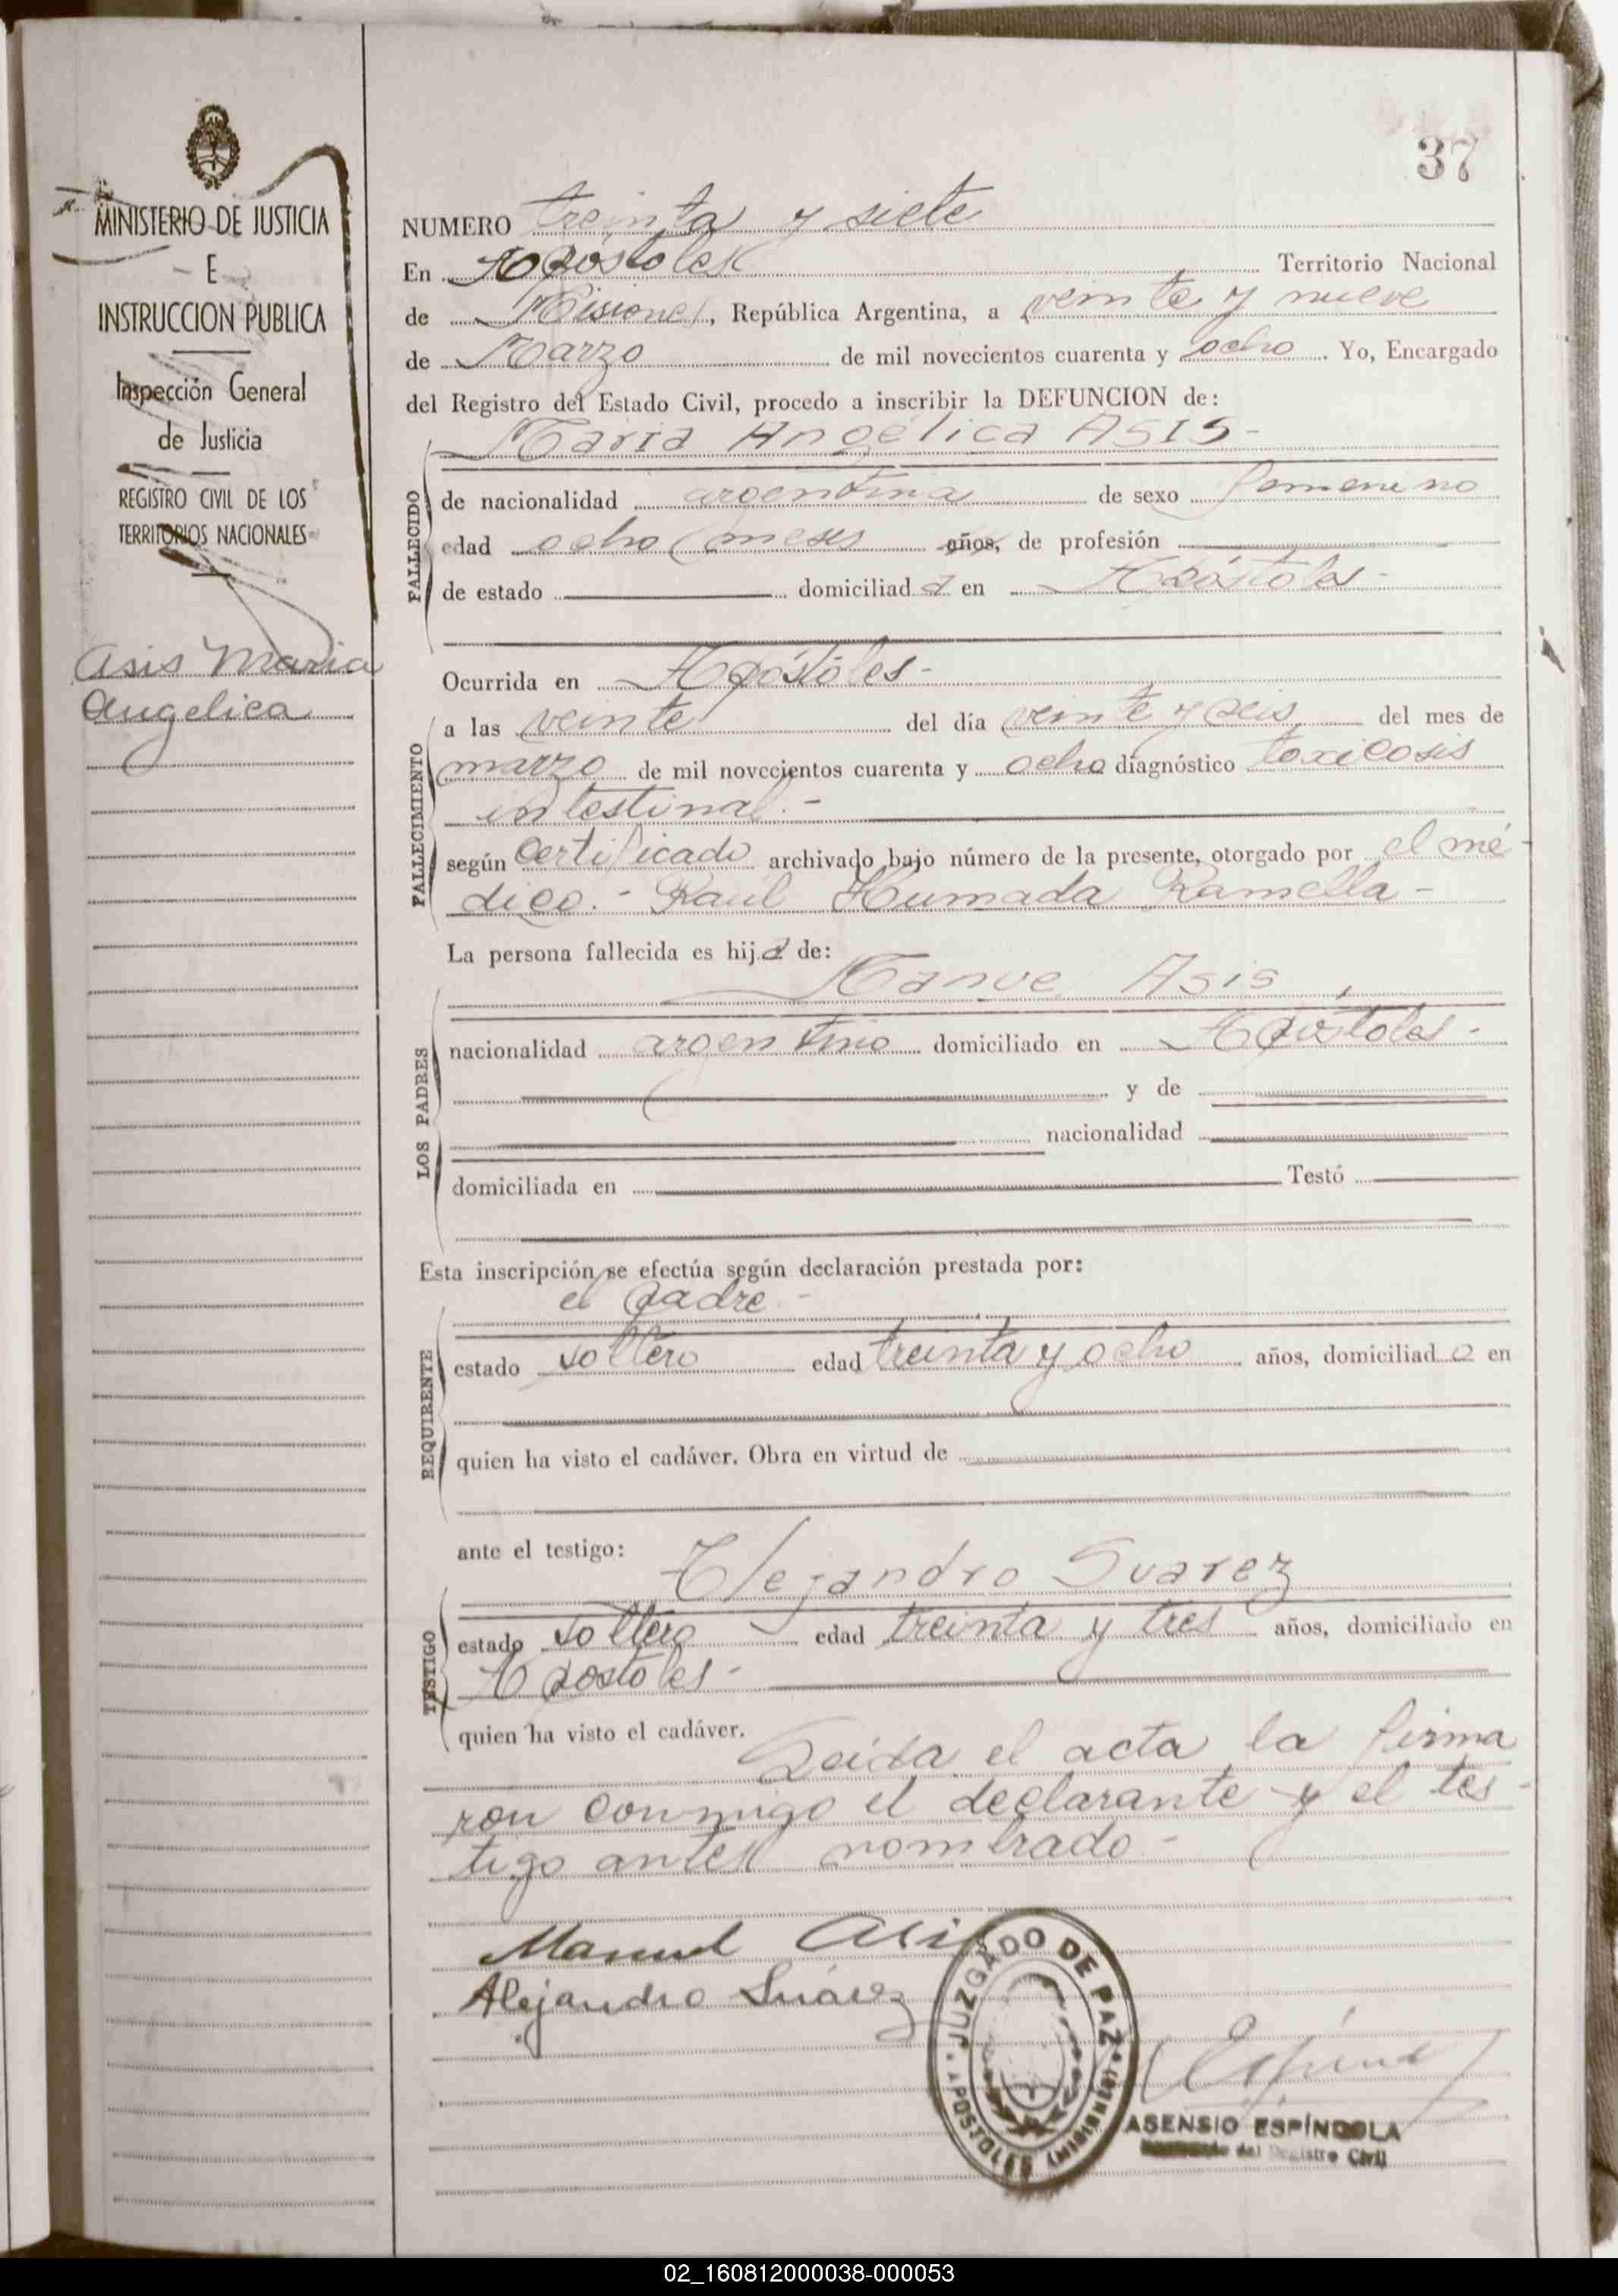 37
MINISTERIO DE JUSTICIA
E
INSTRUCCION PUBLICA
Inspección General
de Justicia
REGISTRO CIVIL DE LOS
TERRITORIOS NACIONALES
Asis Maria
Angelica
NUMERO treinta y siete
En Apóstoles Territorio Nacional
de Misiones, República Argentina, a veinte y nueve
de Marzo de mil novecientos cuarenta y ocho. Yo, Encargado
del Registro del Estado Civil, procedo a inscribir la DEFUNCION de:
Maria Angélica ASIS-
FALLECIDO
de nacionalidad argentina de sexo femenino
edad ocho (meses años, de profesión
de estado domiciliad a en Apóstoles-
Ocurrida en Apóstoles-
FALLECIMIENTO
a las veinte del día veinte y seis del mes de
marzo de mil novecientos cuarenta y ocho diagnóstico toxicosis
intestinal.-
según certificado archivado bajo número de la presente, otorgado por el mé-
dico.- Raúl Humada Ramella-
La persona fallecida es hija de:
Manue Asis,
LOS PADRES
nacionalidad argentino domiciliado en Apóstoles-
y de
nacionalidad
domiciliada en Testó
Esta inscripción se efectúa según declaración prestada por:
el padre-
REQUIRENTE
estado soltero edad treinta y ocho años, domiciliad o en
quien ha visto el cadáver. Obra en virtud de
ante el testigo:
Alejandro Suarez
TESTIGO
estado soltero edad treinta y tres años, domiciliado en
Apostoles-
quien ha visto el cadáver.
Leida el acta la firma
ron conmigo el declarante y el tes-
tigo antes nombrado-
Manuel Asis
Alejandro Suárez
JUZGADO DE PAZ
APOSTOLES (MISIONES)
ASENSIO ESPÍNDOLA
del Registro Civil
02_160812000038-000053